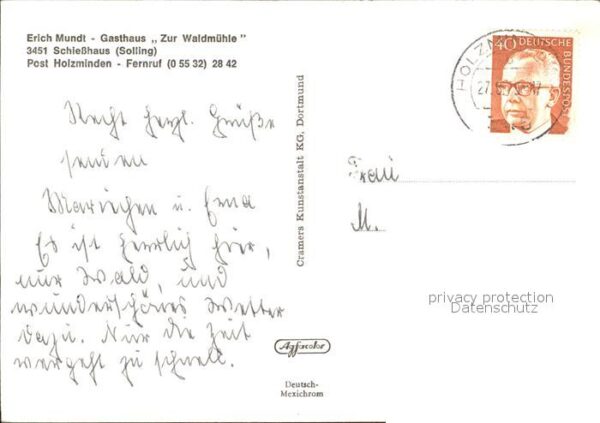 Erich Mundt - Gasthaus „Zur Waldmühle"
3451 Schießhaus (Solling)
Post Holzminden - Fernruf (0 55 32) 28 42
Recht herzl. Grüße
senden
Mariechen u. Erna
Es ist herrlich hier,
nur Wald, und
wunderschönes Wetter
dazu. Nur die Zeit
vergeht zu schnell.
Cramers Kunstanstalt KG, Dortmund
Agfacolor
Deutsch-
Mexichrom
40 DEUTSCHE
BUNDESPOST
HOLZMINDEN
Frau
M.
privacy protection
Datenschutz